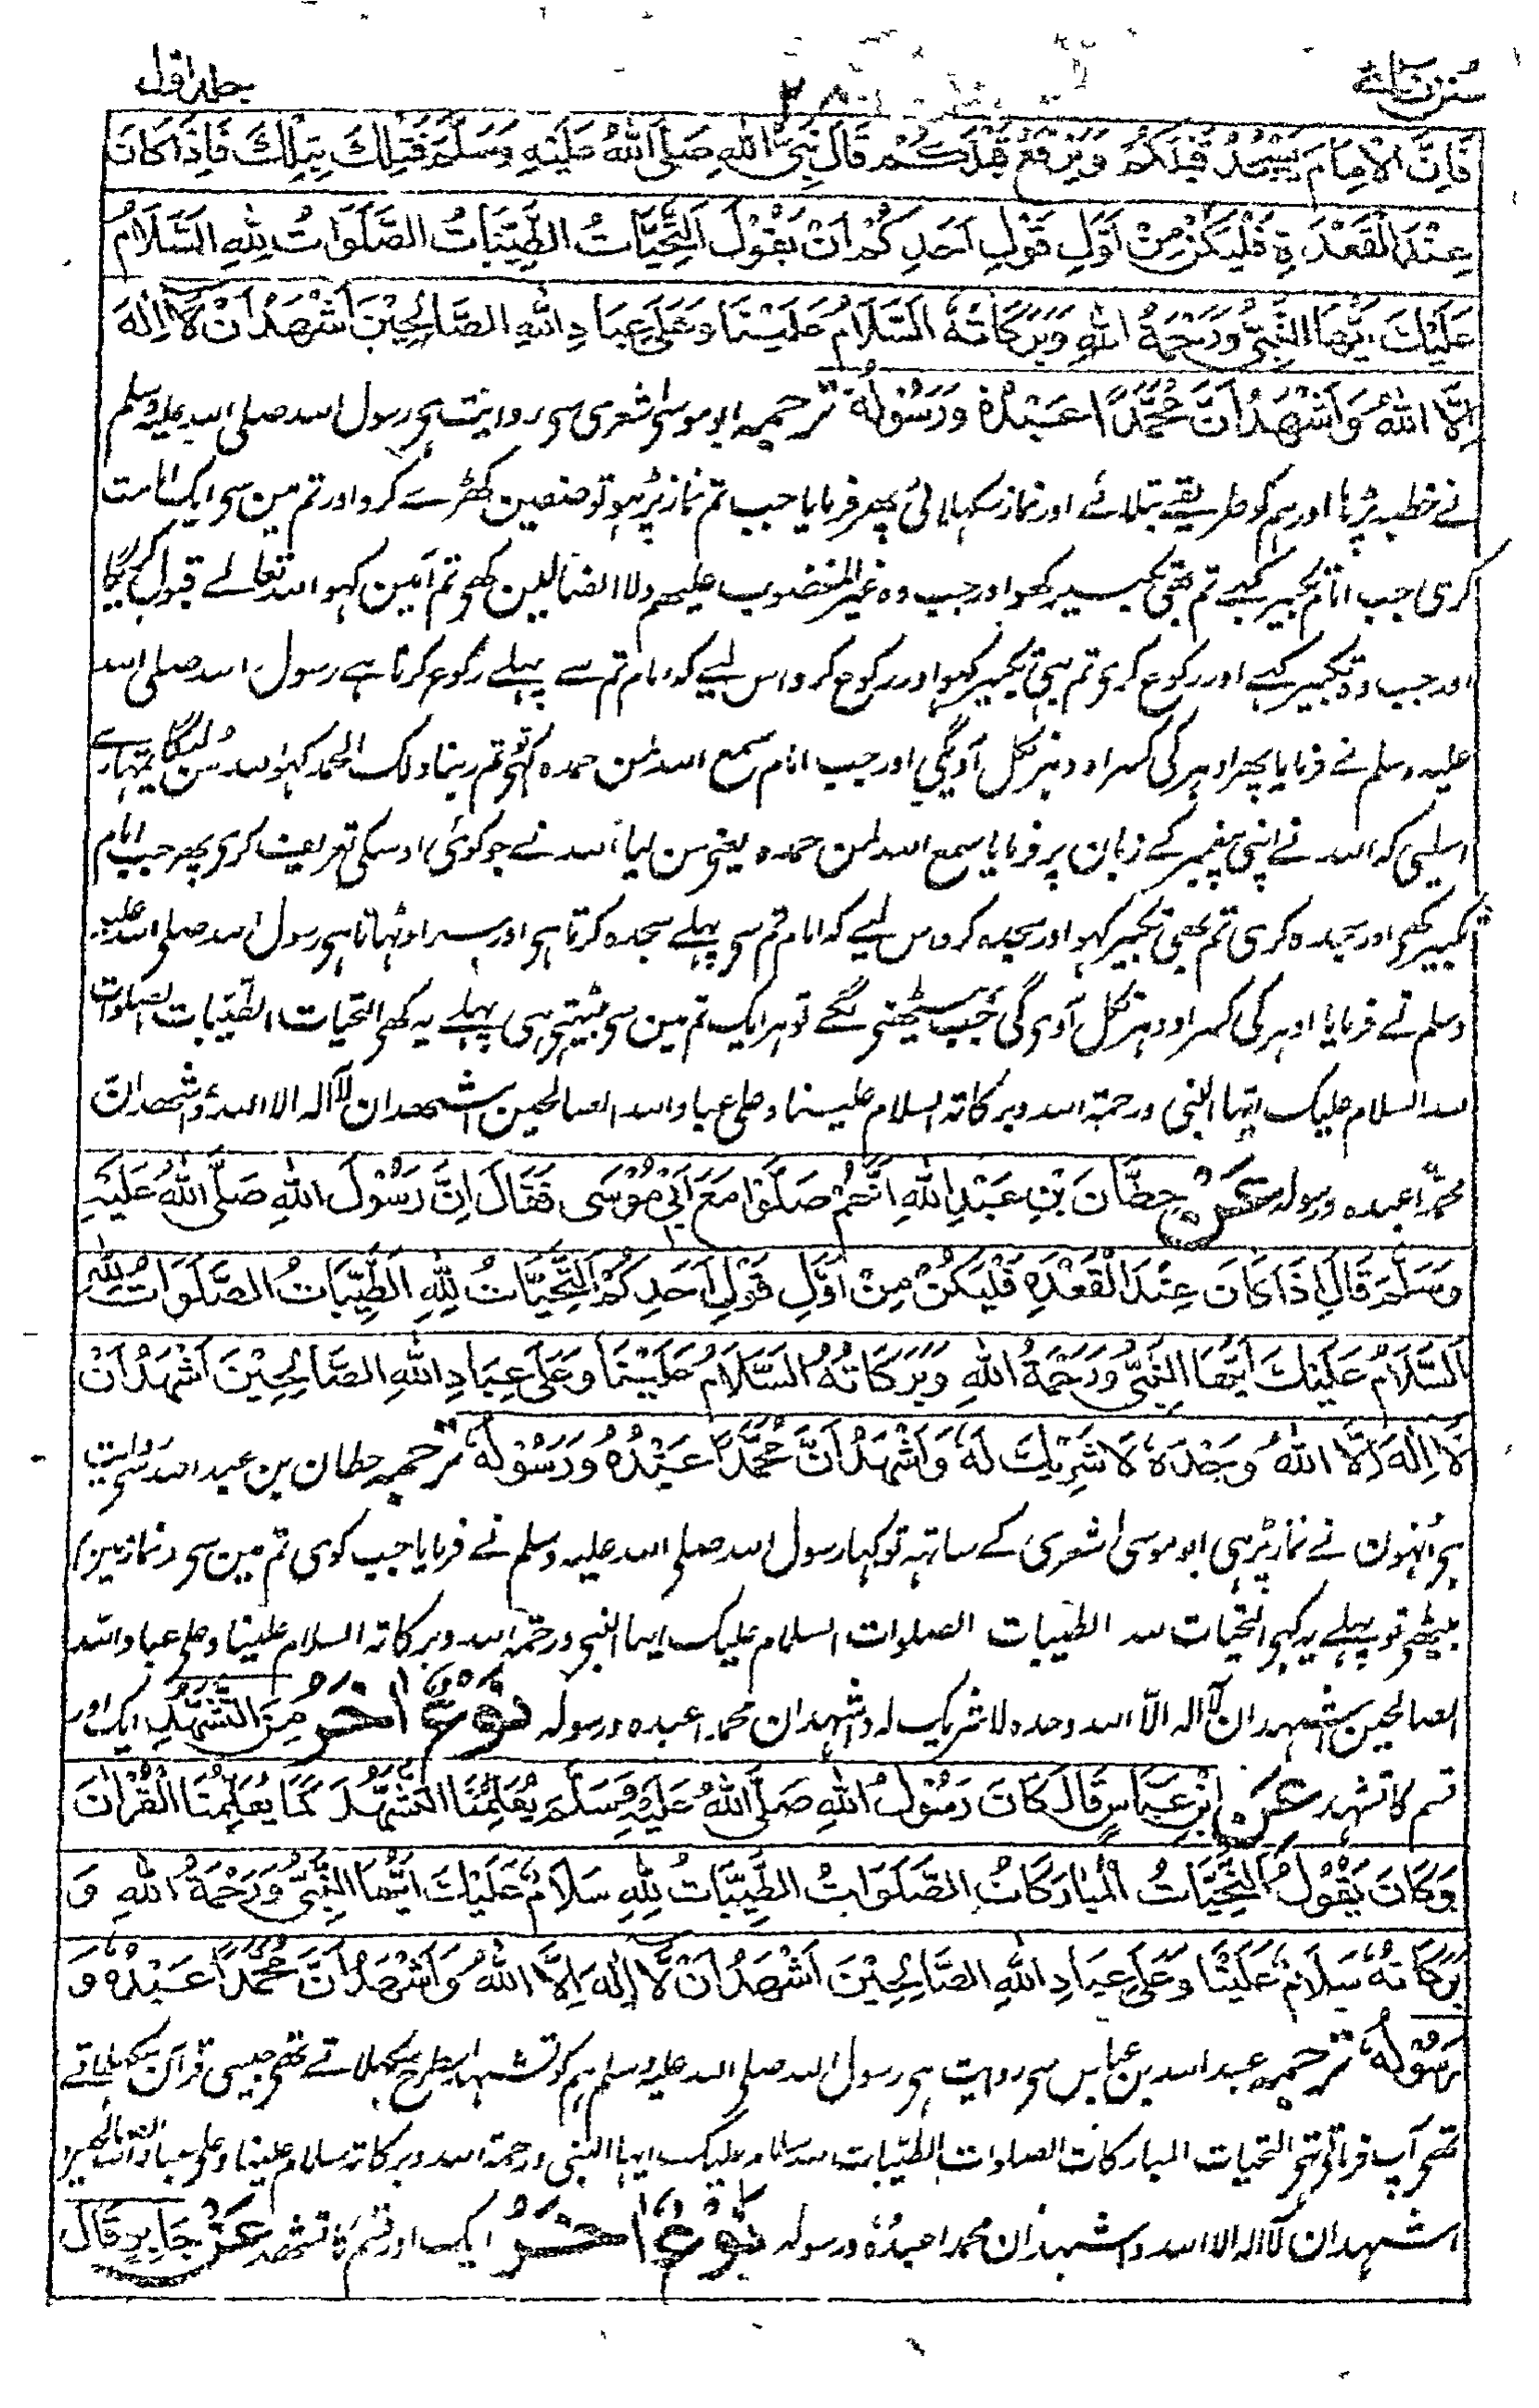 سنن نسائی
جلد اول
فَاِنَّ الْاِمَامَ يَسْجُدُ قَبْلَكُمْ وَيَرْفَعُ قَبْلَكُمْ قَالَ نَبِيُّ اللهِ صَلَّى اللهُ عَلَيْهِ وَسَلَّمَ فَتِلْكَ بِتِلْكَ فَاِذَا كَانَ
عِنْدَ الْقَعْدَةِ فَلْيَكُنْ مِنْ اَوَّلِ قَوْلِ اَحَدِكُمْ اَنْ يَقُوْلَ اَلتَّحِيَّاتُ الطَّيِّبَاتُ الصَّلَوَاتُ لِلهِ السَّلَامُ
عَلَيْكَ اَيُّهَا النَّبِيُّ وَرَحْمَةُ اللهِ وَبَرَكَاتُهٗ اَلسَّلَامُ عَلَيْنَا وَعَلٰى عِبَادِ اللهِ الصَّالِحِيْنَ اَشْهَدُ اَنْ لَا اِلٰهَ
اِلَّا اللهُ وَاَشْهَدُ اَنَّ مُحَمَّدًا عَبْدُهٗ وَرَسُوْلُهٗ ترجمہ ابو موسٰی اشعری سی روایت ہی رسول اللہ صلی اللہ علیہ وسلم
نے خطبہ پڑہا اور ہم کو طریقے بتلائے اور نماز سکہلائی پھر فرمایا جب تم نماز پڑہو تو صفین کھڑے کرو اور تم مین سی ایک امامت
کری جب امام تکبیر کہے تم بھی تکبیر کہو اور جب وہ غیر المغضوب علیھم ولا الضالین کھے تم آمین کہو اللہ تعالے قبول کریگا
اور جب وہ تکبیر کہے اور رکوع کری تم بہی تکبیر کہو اور رکوع کرو اس لیے کہ امام تم سے پہلے رکوع کرتا ہے رسول اللہ صلی اللہ
علیہ وسلم نے فرمایا پھر ادہر کی کسر اودہر نکل آویگی اور جب امام سمع اللہ لمن حمدہ کہے تو تم ربنا ولک الحمد کہو اللہ سُن لیگا تمہارے
اسلیی کہ اللہ نے اپنی پیغمبر کے زبان پر فرمایا سمع اللہ لمن حمدہ یعنی سن لیا اللہ نے جو کوئی اوسکی تعریف کری پھر جب امام
تکبیر کھی اور سجدہ کری تم بھی تکبیر کہو اور سجدہ کرو اس لیے کہ امام تم سی پہلے سجدہ کرتا ہی اور سر اوٹہاتا ہی رسول اللہ صلی اللہ علیہ
وسلم نے فرمایا ادہر کی کسر اودہر نکل آوی گی جب بیٹھنی لگے تو ہر ایک تم مین سی بیٹتی ہی پہلے یہ کھی التحیات الطیبات الصلوات
للہ السلام علیک ایہا النبی ورحمۃ اللہ وبرکاتہ السلام علینا وعلی عباد اللہ الصالحین اشھد ان لا الہ الا اللہ واشھد ان
محمدا عبدہ ورسولہ عَنْ حِطَّانَ بْنِ عَبْدِ اللهِ اَنَّهُمْ صَلَّوْا مَعَ اَبِيْ مُوْسٰى فَقَالَ اِنَّ رَسُوْلَ اللهِ صَلَّى اللهُ عَلَيْهِ
وَسَلَّمَ قَالَ اِذَا كَانَ عِنْدَ الْقَعْدَةِ فَلْيَكُنْ مِنْ اَوَّلِ قَوْلِ اَحَدِكُمْ اَلتَّحِيَّاتُ لِلّٰهِ الطَّيِّبَاتُ الصَّلَوَاتُ لِلّٰهِ
اَلسَّلَامُ عَلَيْكَ اَيُّهَا النَّبِيُّ وَرَحْمَةُ اللهِ وَبَرَكَاتُهُ السَّلَامُ عَلَيْنَا وَعَلٰى عِبَادِ اللهِ الصَّالِحِيْنَ اَشْهَدُ اَنْ
لَا اِلٰهَ اِلَّا اللهُ وَحْدَهٗ لَا شَرِيْكَ لَهٗ وَاَشْهَدُ اَنَّ مُحَمَّدًا عَبْدُهُ وَرَسُوْلُهٗ ترجمہ حطان بن عبد اللہ سی روایت
ہی اُنہون نے نماز پڑہی ابو موسی اشعری کے ساتہہ تو کہا رسول اللہ صلی اللہ علیہ وسلم نے فرمایا جب کوی تم مین سی (نماز مین)
بیٹھی تو پہلے یہ کہی التحیات للہ الطیبات الصلوات السلام علیک ایہا النبی ورحمۃ اللہ وبرکاتہ السلام علینا وعلی عباد اللہ
الصالحین اشہد ان لا الہ الا اللہ وحدہ لا شریک لہ واشہد ان محمدا عبدہ ورسولہ نَوْعٌ اٰخَرُ مِنَ التَّشَهُّدِ ایک اور
قسم کا تشہد عَنِ ابْنِ عَبَّاسٍ قَالَ كَانَ رَسُوْلُ اللهِ صَلَّى اللهُ عَلَيْهِ وَسَلَّمَ يُعَلِّمُنَا التَّشَهُّدَ كَمَا يُعَلِّمُنَا الْقُرْاٰنَ
وَكَانَ يَقُوْلُ اَلتَّحِيَّاتُ الْمُبَارَكَاتُ الصَّلَوَاتُ الطَّيِّبَاتُ لِلهِ سَلَامٌ عَلَيْكَ اَيُّهَا النَّبِيُّ وَرَحْمَةُ اللهِ وَ
بَرَكَاتُهٗ سَلَامٌ عَلَيْنَا وَعَلٰى عِبَادِ اللهِ الصَّالِحِيْنَ اَشْهَدُ اَنْ لَّا اِلٰهَ اِلَّا اللهُ وَاَشْهَدُ اَنَّ مُحَمَّدًا عَبْدُهٗ وَ
رَسُوْلُهٗ ترجمہ عبد اللہ بن عباس سی روایت ہی رسول اللہ صلی اللہ علیہ وسلم ہم کو تشہد ایسطرح سکہلاتے تھی جیسی قرآن سکہلاتے
تھی آپ فرماتی تھی التحیات المبارکات الصلوات الطیبات للہ سلام علیک ایہا النبی ورحمۃ اللہ وبرکاتہ سلام علینا وعلی عباد اللہ الصالحین
اشہد ان لا الہ الا اللہ واشہد ان محمدا عبدہ ورسولہ نَوْعٌ اٰخَرُ ایک اور قسم کا تشھد عَنْ جَابِرٍ قَالَ